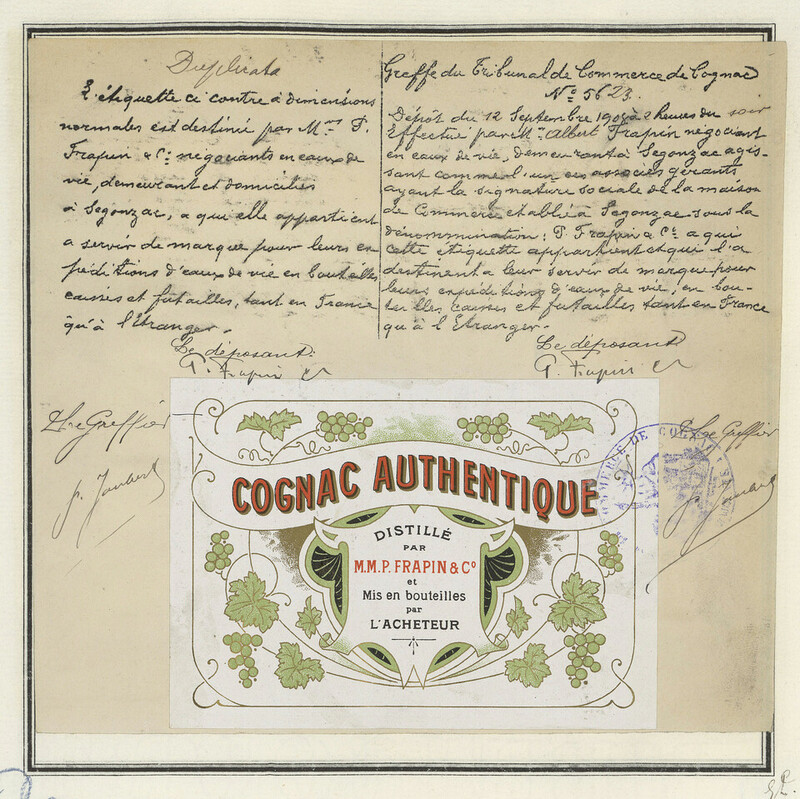 Duplicata
L'étiquette ci contre à dimensions
normales est destinée par M.rs P.
Frapin & Cie négociants en eaux de
vie, demeurant et domiciliés
à Segonzac, a que elle appartient
a servir de marque pour leurs ex
péditions d'eaux de vie en bouteilles
caisses et futailles, tant en France
qu'à l'Etranger.
Le déposant.
P. Frapin & Cie
Le Greffier
p. Joubert
Greffe du Tribunal de Commerce de Cognac
No 5623.
Dépôt du 12 Septembre 1908 à 2 heures du soir
Effectué par Mr Albert Frapin négociant
en eaux de vie, demeurant à Segonzac agis-
sant comme l'un des associés gérants
ayant la signature sociale de la maison
de Commerce établie à Segonzac sous la
dénommination: P. Frapin & Cie a qui
cette étiquette appartient et qui l'a
destinent a leur servir de marque pour
leurs expéditions d'eaux de vie, en bou-
teilles caisses et futailles tant en France
qu'à l'Etranger.
Le déposant
P. Frapin & Cie
Le Greffier
p. Joubert
COMMERCE DE COGNAC
COGNAC AUTHENTIQUE
DISTILLÉ
PAR
M.M.P. FRAPIN & Co
et
Mis en bouteilles
par
L'ACHETEUR